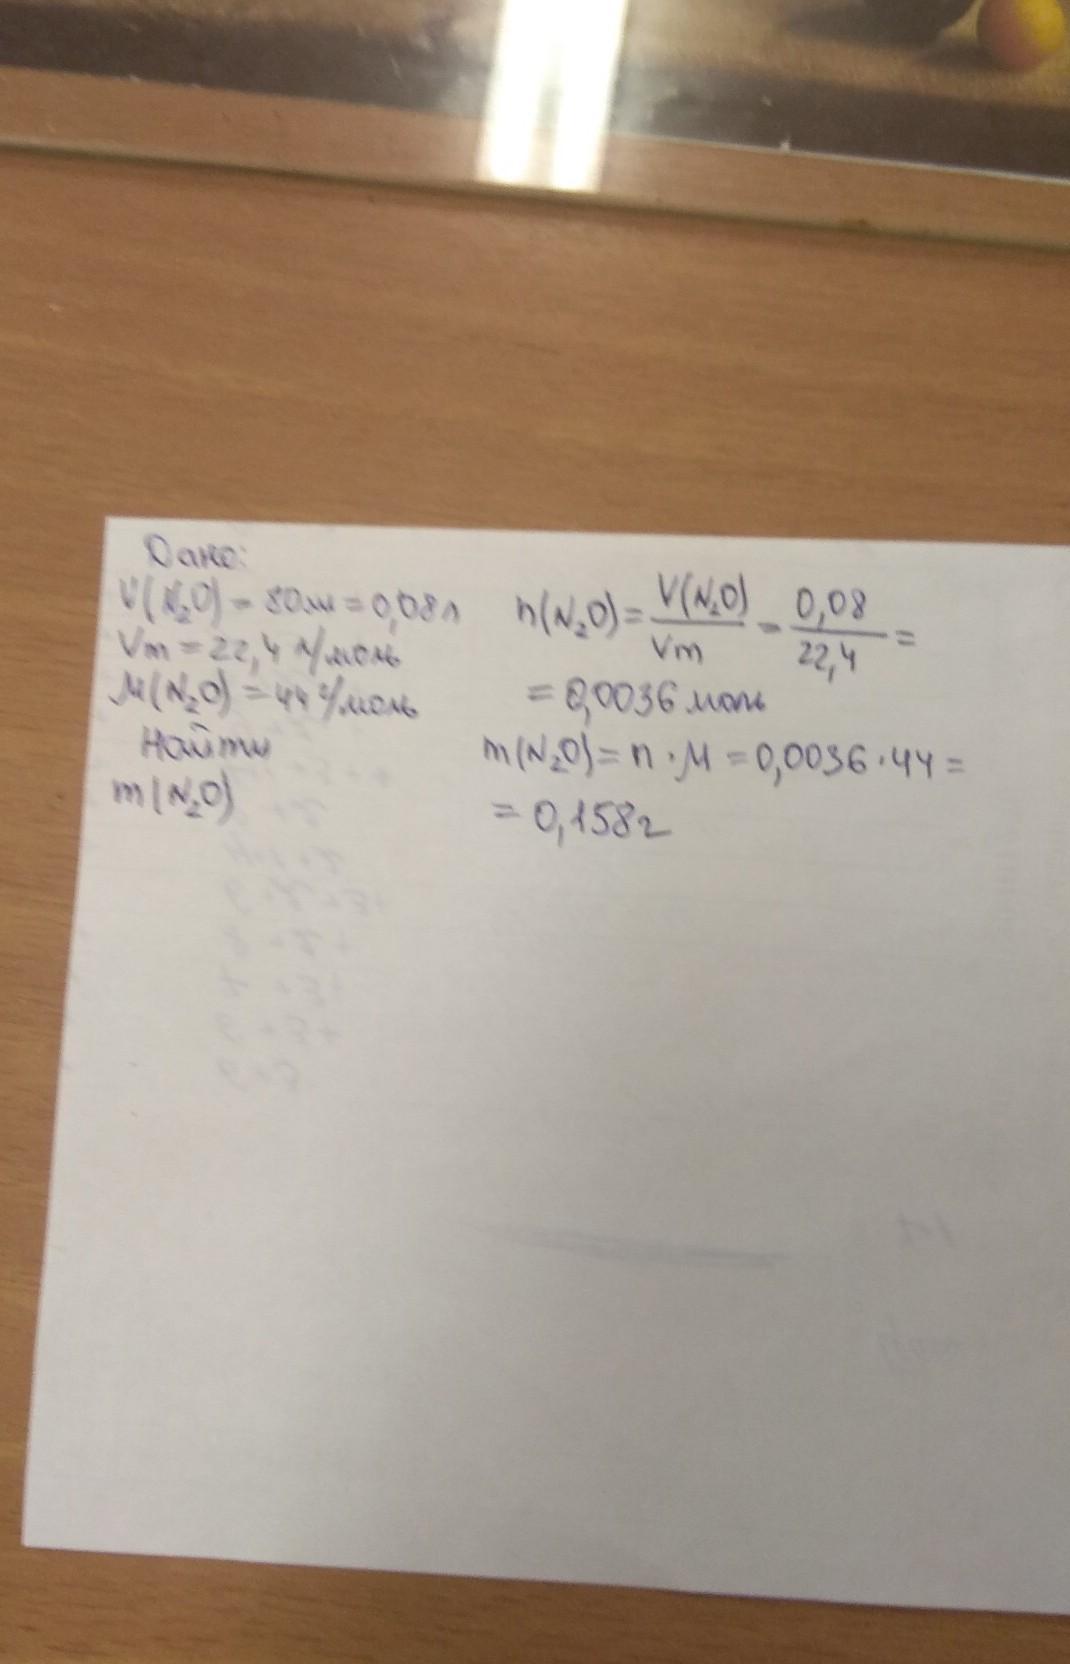 Дано:
V(N₂O) = 80 мл = 0,08 л
Vm = 22,4 л/моль
M(N₂O) = 44 г/моль
Найти
m(N₂O)
n(N₂O) = V(N₂O)/Vm = 0,08/22,4 =
= 0,0036 моль
m(N₂O) = n · M = 0,0036 · 44 =
= 0,158 г